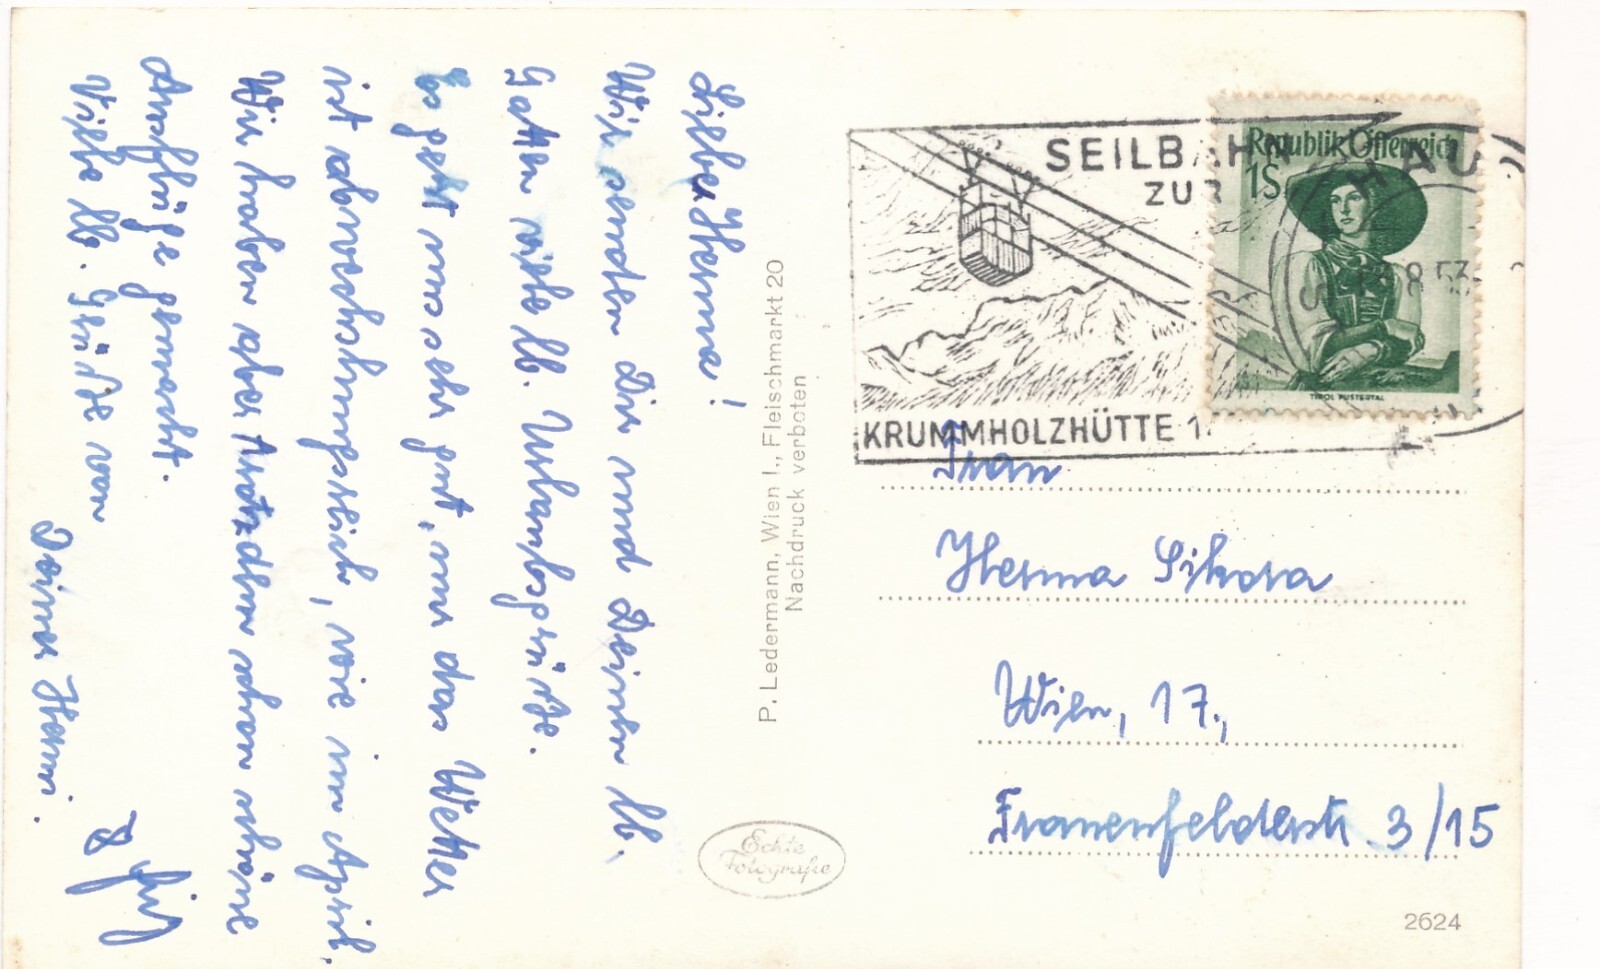 Liebe Herma!
Wir senden Dir und Deinem lb.
Gatten viele lb. Urlaubsgrüße.
Es geht uns sehr gut, nur das Wetter
ist abwechslungsreich, wie im April.
Wir haben aber trotzdem schon schöne
Ausflüge gemacht.
Viele lb. Grüße von
Deiner Hermi.
P. Ledermann, Wien I., Fleischmarkt 20
Nachdruck verboten
Echte
Fotografie
SEILBAHN
ZUR
KRUMMHOLZHÜTTE
Republik Österreich
1S
8 53
TIROL PUSTERTAL
Frau
Herma Sikora
Wien, 17.,
Frauenfelderstr. 3/15
2624